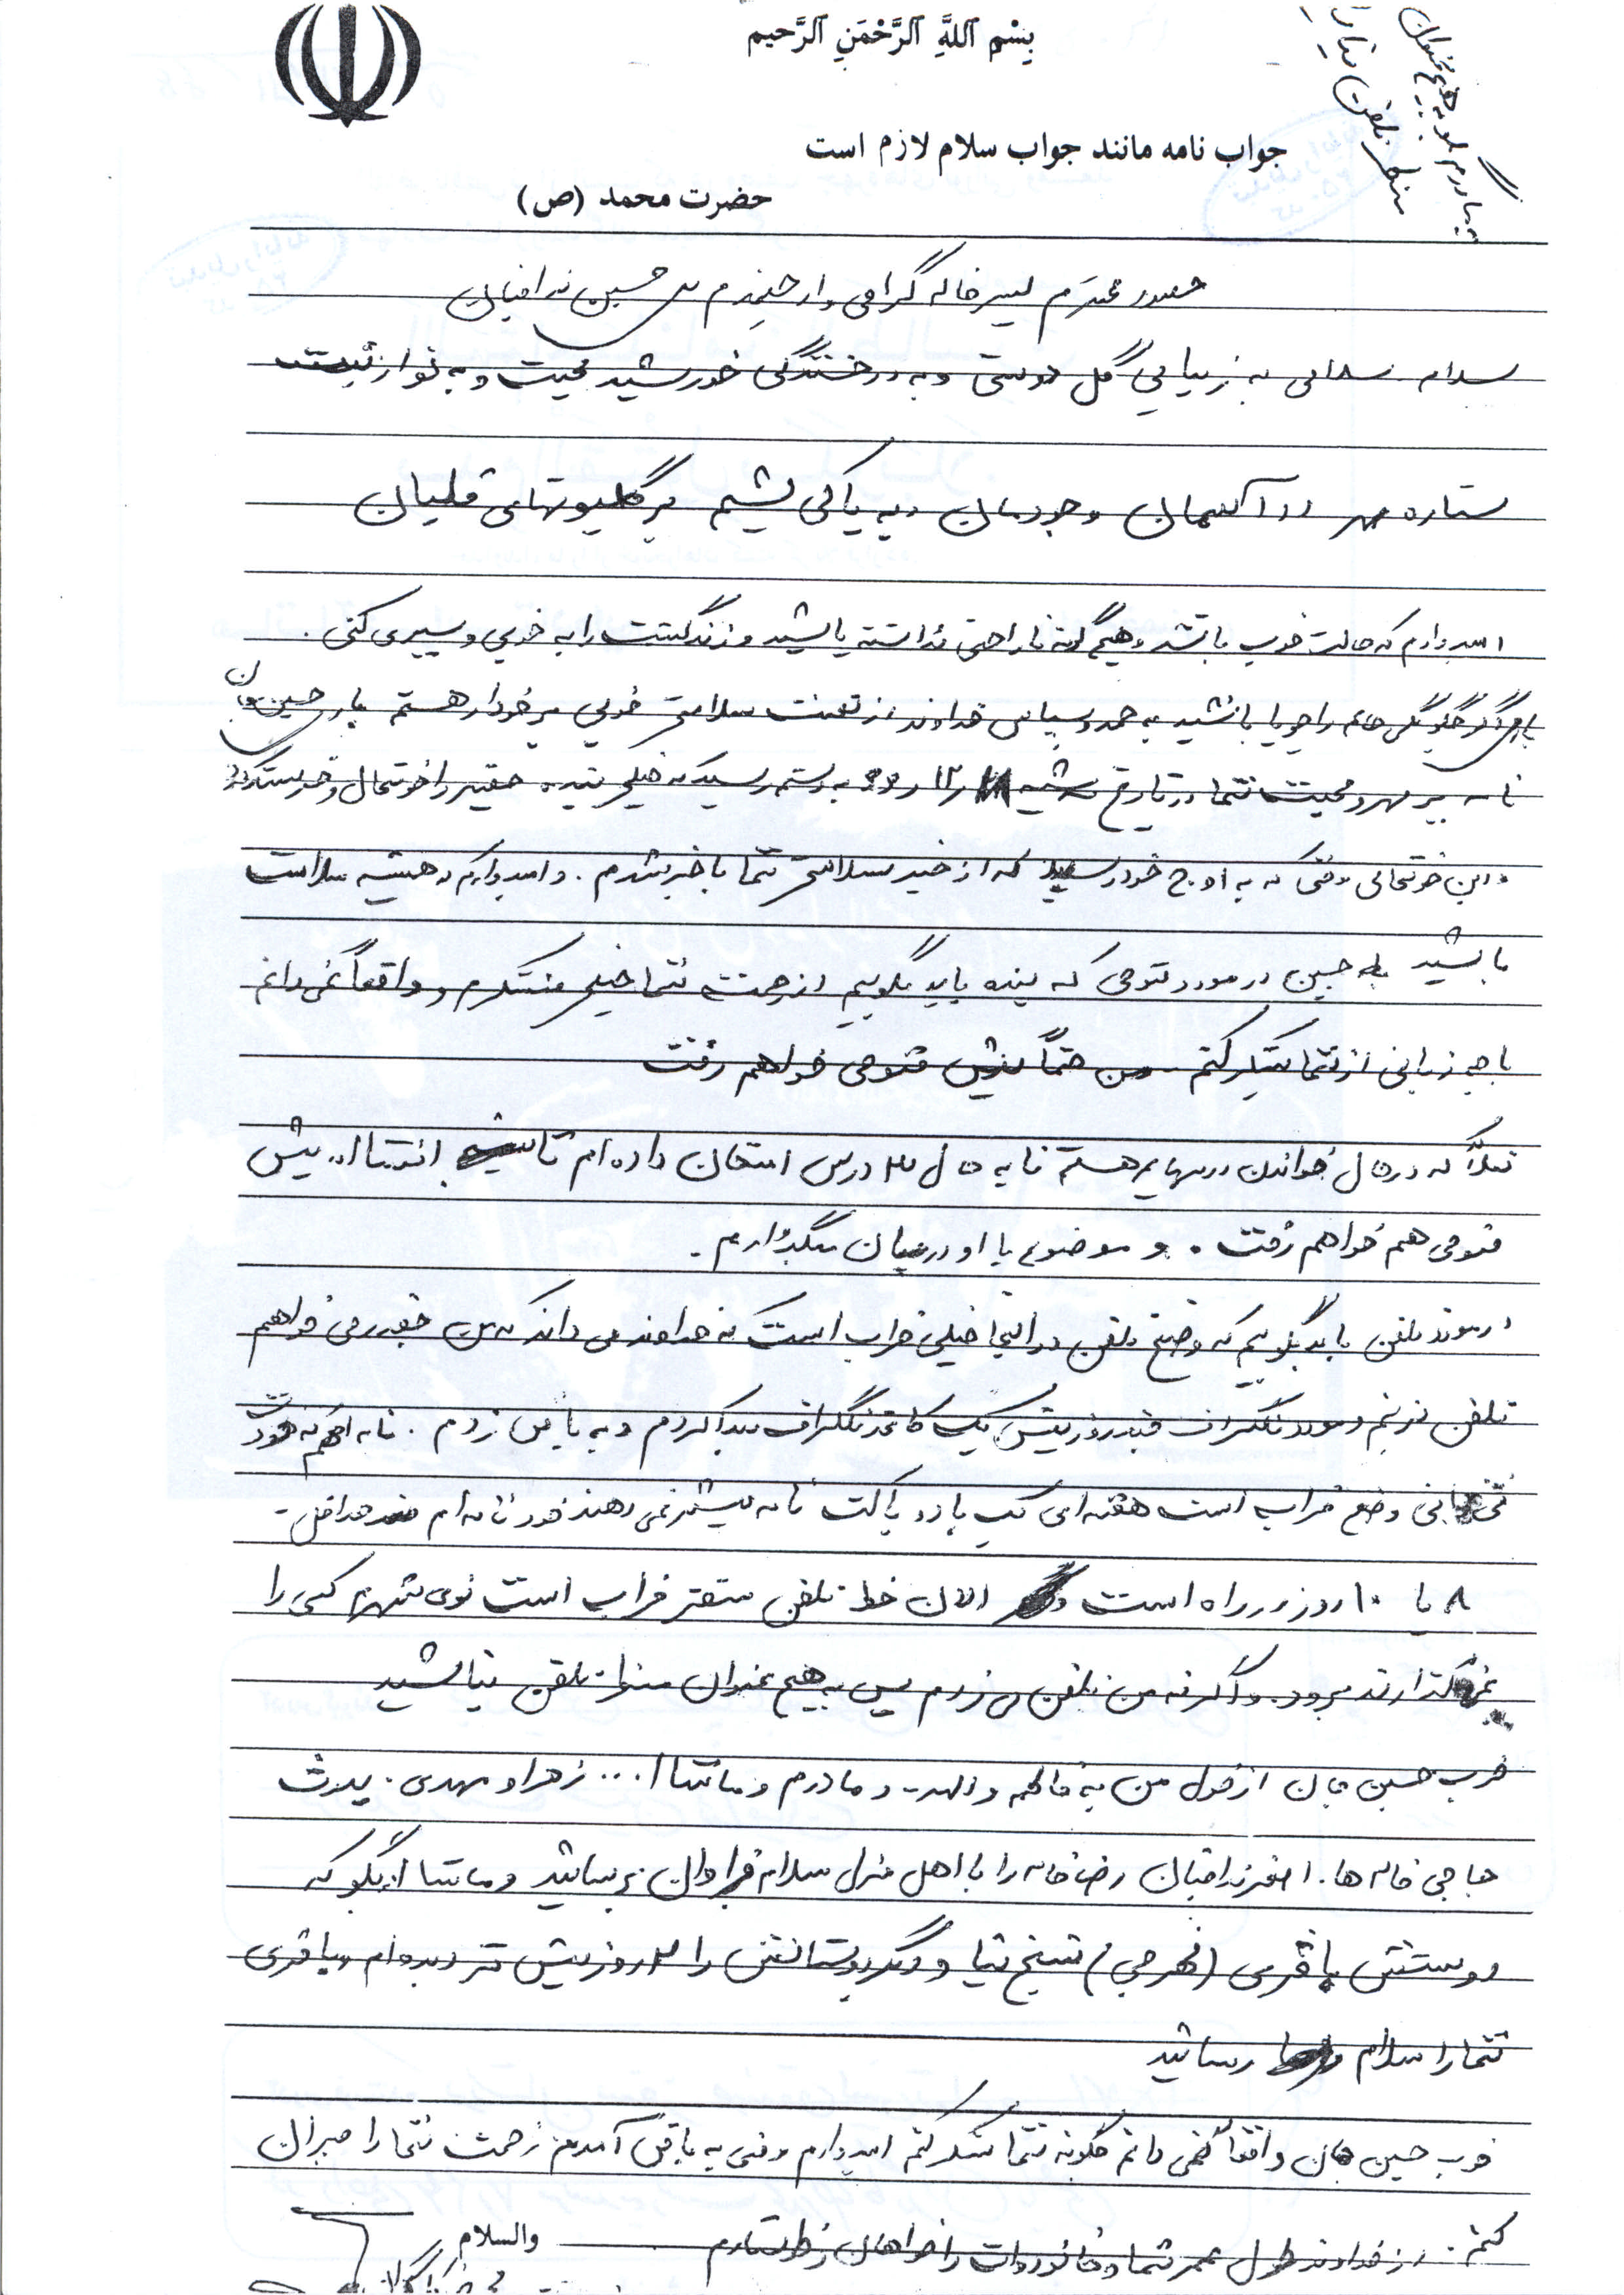 بِسْمِ ٱللَّهِ ٱلرَّحْمَنِ ٱلرَّحيم
به مادرم بگو به هیچ عنوان
منتظر تلفن نباش
جواب نامه مانند جواب سلام لازم است
حضرت محمد (ص)
حضور محترم پسر خاله گرامی و ارجمندم حسین ندافیان
سلام سلامی به زیبایی گل دوستی و به درخشندگی خورشید محبت و به
ستاره مهر در آسمان وجودمان و به پاکی شبنم بر گلبرگهای قلبمان
امیدوارم که حالت خوب باشد و هیچگونه ناراحتی نداشته باشید و زندگیت را به خوبی سپری کنی.
باری اگر چگونگی حالم را جویا باشید به حمد و سپاس خداوند از نعمت سلامتی خوبی برخوردار هستم باری حسین جان
نامه پر مهر و محبت شما در تاریخ به دستم رسید که خیلی بنده حقیر را خوشحال و
و این خوشحالی وقتی که به اوج خود رسید که از خبر سلامتی شما باخبر شدم. و امیدوارم که همیشه سلامت
باشید حسین در مورد که بنده باید بگویم از زحمت شما خیلی متشکرم و واقعاً نمی دانم
با چه زبانی از شما تشکر کنم من حتماً پیش خواهم رفت
فعلاً که در حال خواندن درسهایم هستم تا به حال ۳ درس امتحان داده ام انشاا... پیش
هم خواهم رفت. و موضوع با او در میان میگذارم.
در مورد تلفن باید بگویم که وضع تلفن در اینجا خیلی خراب است که خداوند می داند که من چقدر می خواهم
تلفن بزنم و مورد تلگراف چند روز پیش یک کاغذ تلگراف پیدا کردم و به بافق زدم. نامه هم که خودت
نمی دانی وضع خراب است هفته ای یک یا دو پاکت نامه بیشتر نمی دهند خود نامه ام حداقل -
۸ یا ۱۰ روز در راه است الان خط تلفن خراب است توی شهر هم کسی را
نمی گذارند برود. و اگر نه من تلفن می زدم پس به هیچ عنوان منتظر تلفن نباشید
خوب حسین جان از قول من به خاله و مادرم و ماشاا... زهرا و مهدی. پدرت
حاجی خاله ها. اصغر ندافیان رضا خاله را با اهل منزل سلام فراوان برسانید و ماشاا... بگو که
دوستش باقری (فهرجی) شیخ نیا و دیگر دوستانش را ۳ روز پیش دیده ام باقری
شما را سلام رسانید
خوب حسین جان واقعاً نمی دانم چگونه از شما تشکر کنم امیدوارم وقتی به بافق آمدم زحمت شما را جبران
کنم. از خداوند طول عمر شما و خانوادات را خواهان و خواستارم
والسلام